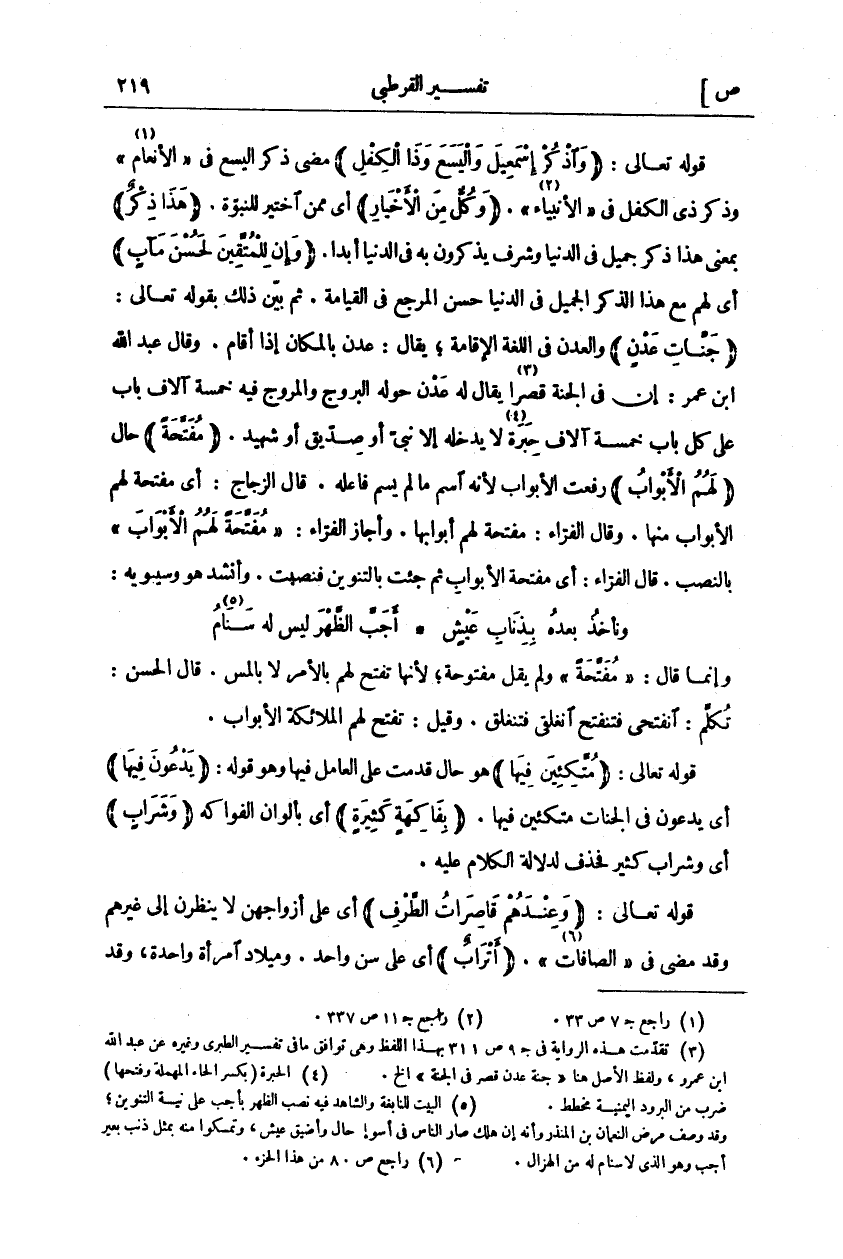 ص ] تفسير القرطبي ٢١٩
قوله تعالى : ﴿ وَٱذْكُرْ إِسْمَعِيلَ وَٱلْيَسَعَ وَذَا ٱلْكِفْلِ ﴾ مضى ذكر اليسع فى « الأنعام »(١)
وذكر ذى الكفل فى « الأنبياء »(٢) . ﴿ وَكُلٌّ مِنَ الْأَخْيَارِ ﴾ أى ممن آختير للنبوّة . ﴿ هَذَا ذِكْرٌ ﴾
بمعنى هذا ذكر جميل فى الدنيا وشرف يذكرون به فى الدنيا أبدا. ﴿ وَإِنَّ لِلْمُتَّقِينَ لَحُسْنَ مَآبٍ ﴾
أى لهم مع هذا الذكر الجميل فى الدنيا حسن المرجع فى القيامة . ثم بيّن ذلك بقوله تعالى :
﴿ جَنَّاتِ عَدْنٍ ﴾ والعدن فى اللغة الإقامة ؛ يقال : عدن بالمكان إذا أقام . وقال عبد الله
ابن عمر : إن فى الجنة قصرا(٣) يقال له عَدْن حوله البروج والمروج فيه خمسة آلاف باب
على كل باب خمسة آلاف حِبَرَة(٤) لا يدخله إلا نبىّ أو صدّيق أو شهيد . ﴿ مُفَتَّحَةً ﴾ حال
﴿ لَهُمُ الْأَبْوَابُ ﴾ رفعت الأبواب لأنه آسم ما لم يسم فاعله . قال الزجاج : أى مفتحة لهم
الأبواب منها . وقال الفرّاء : مفتحة لهم أبوابها . وأجاز الفرّاء : « مُفَتَّحَةً لَهُمُ الْأَبْوَابَ »
بالنصب . قال الفراء : أى مفتحة الأبوابِ ثم جئت بالتنوين فنصبت . وأنشد هو وسيبويه :
ونأخذُ بعدهُ بِذِنَابِ عَيْشٍ * أَجَبَّ الظَّهْرَ ليس له سَنَامُ(٥)
وإنما قال : « مُفَتَّحَةً » ولم يقل مفتوحة؛ لأنها تفتح لهم بالأمر لا بالمس . قال الحسن :
تُكلَّم : آنفتحى فتنفتح آنغلقى فتنغلق . وقيل : تفتح لهم الملائكة الأبواب .
قوله تعالى : ﴿ مُتَّكِئِينَ فِيهَا ﴾ هو حال قدمت على العامل فيها وهو قوله : ﴿ يَدْعُونَ فِيهَا ﴾
أى يدعون فى الجنات متكئين فيها . ﴿ بِفَاكِهَةٍ كَثِيرَةٍ ﴾ أى بألوان الفواكه ﴿ وَشَرَابٍ ﴾
أى وشراب كثير فحذف لدلالة الكلام عليه .
قوله تعالى : ﴿ وَعِنْدَهُمْ قَاصِرَاتُ الطَّرْفِ ﴾ أى على أزواجهن لا ينظرن إلى غيرهم
وقد مضى فى « الصافات »(٦) . ﴿ أَتْرَابٌ ﴾ أى على سن واحد . وميلاد آمرأة واحدة، وقد
(١) راجع جـ ٧ ص ٣٣ . (٢) راجع جـ ١١ ص ٣٢٧ .
(٣) تقدّمت هذه الرواية فى جـ ٩ ص ٣١١ بهذا اللفظ وهى توافق ما فى تفسير الطبرى وغيره عن عبد الله
ابن عمرو ، ولفظ الأصل هنا « جنة عدن قصر فى الجنة » الخ . (٤) الحبرة (بكسر الحاء المهملة وفتحها)
ضرب من البرود اليمنية مخطط . (٥) البيت للنابغة والشاهد فيه نصب الظهر بأجب على نية التنوين ؛
وقد وصف مرض النعمان بن المنذر وأنه إن هلك صار الناس فى أسوإ حال وأضيق عيش ، وتمسكوا منه بمثل ذنب بعير
أجب وهو الذى لا سنام له من الهزال . (٦) راجع ص ٨٠ من هذا الجزء .